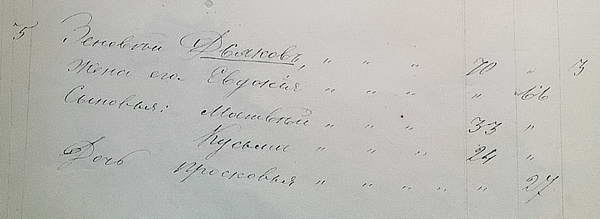 75 Зеновій Дьяковъ, " " " 70 " 3
Жена его Евдокія " " " " 66
Сыновья: Матвѣй " " " 33 "
Кузьма " " " 24 "
Дочь Просковья " " " " " 27